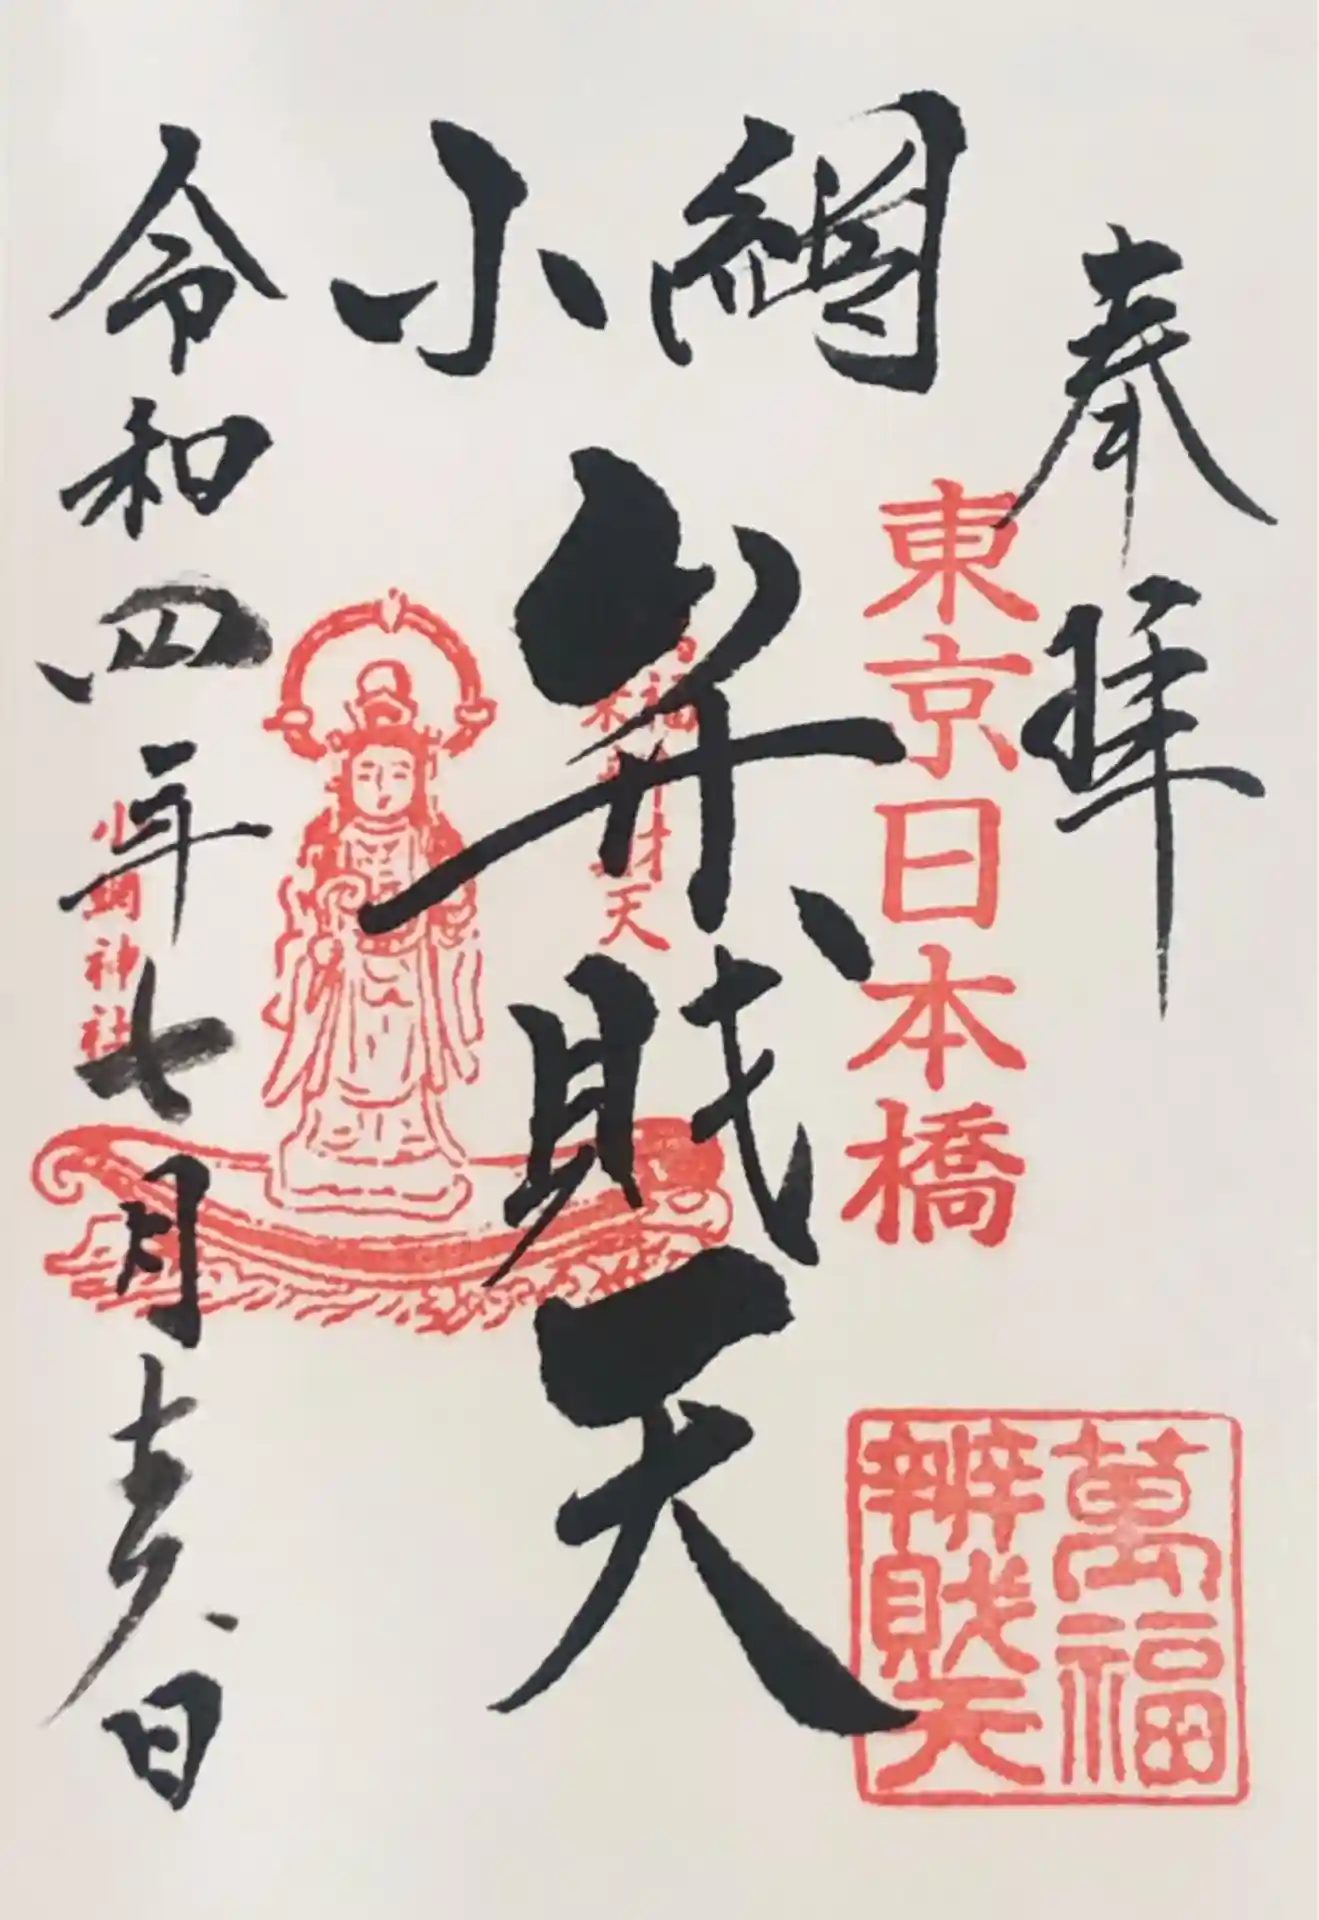 奉拝
東京日本橋
萬福
辨財天
小網
弁財天
天
小網神社
令和四年七月日